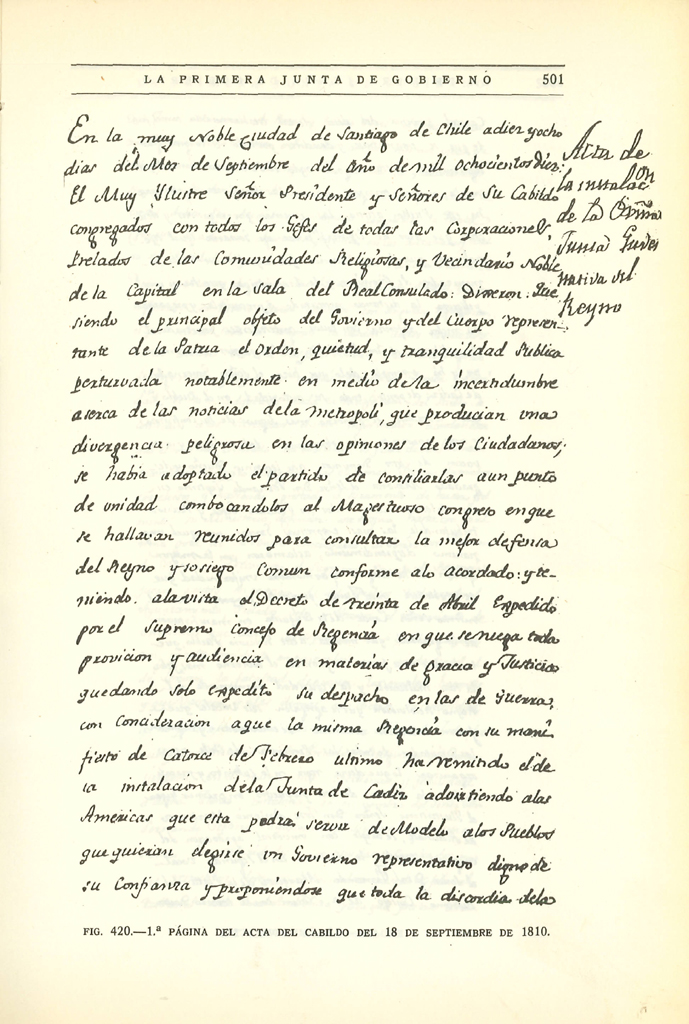 LA PRIMERA JUNTA DE GOBIERNO 501
En la muy Noble Ciudad de Santiago de Chile adiez yocho
dias del Mes de Septiembre del Año de mil ochocientos diez:
El Muy Ylustre Señor Presidente y Señores de Su Cabildo
congregados con todos los Gefes de todas las Corporaciones,
Prelados de las Comunidades Religiosas, y Vecindario Noble
de la Capital en la sala del Real Consulado: Dixeron: Que
siendo el principal objeto del Govierno y del Cuerpo represen-
tante de la Patria el orden, quietud, y tranquilidad Publica
perturvada notablemente en medio de la incertidumbre
aserca de las noticias dela metropoli, que producian una
divergencia peligrosa en las opiniones de los Ciudadanos;
se habia adoptado el partido de consiliarlas a un punto
de unidad combocandolos al Magestuoso congreso en que
se hallavan reunidos para consultar la mejor defensa
del Reyno y sosiego Comun conforme alo acordado: y te-
niendo ala vista el Decreto de treinta de Abril Expedido
por el supremo Consejo de Regencia en que se niega toda
provicion y audiencia en materias de gracia y Justicia
quedando solo expedito su despacho en las de Guerra,
con Concideracion a que la misma Regencia con su mani-
fiesto de Catorce de Febrero ultimo ha remitido el de
la instalacion dela Junta de Cadiz advirtiendo alas
Americas que esta podra servir de Modelo a los Pueblos
que quieran elegirse un Govierno representativo digno de
su Confianza y proponiendose que toda la discordia dela
Acta de
la instalacion
de la Prima
Junta Guber
nativa del
Reyno
FIG. 420.—1.ª PÁGINA DEL ACTA DEL CABILDO DEL 18 DE SEPTIEMBRE DE 1810.